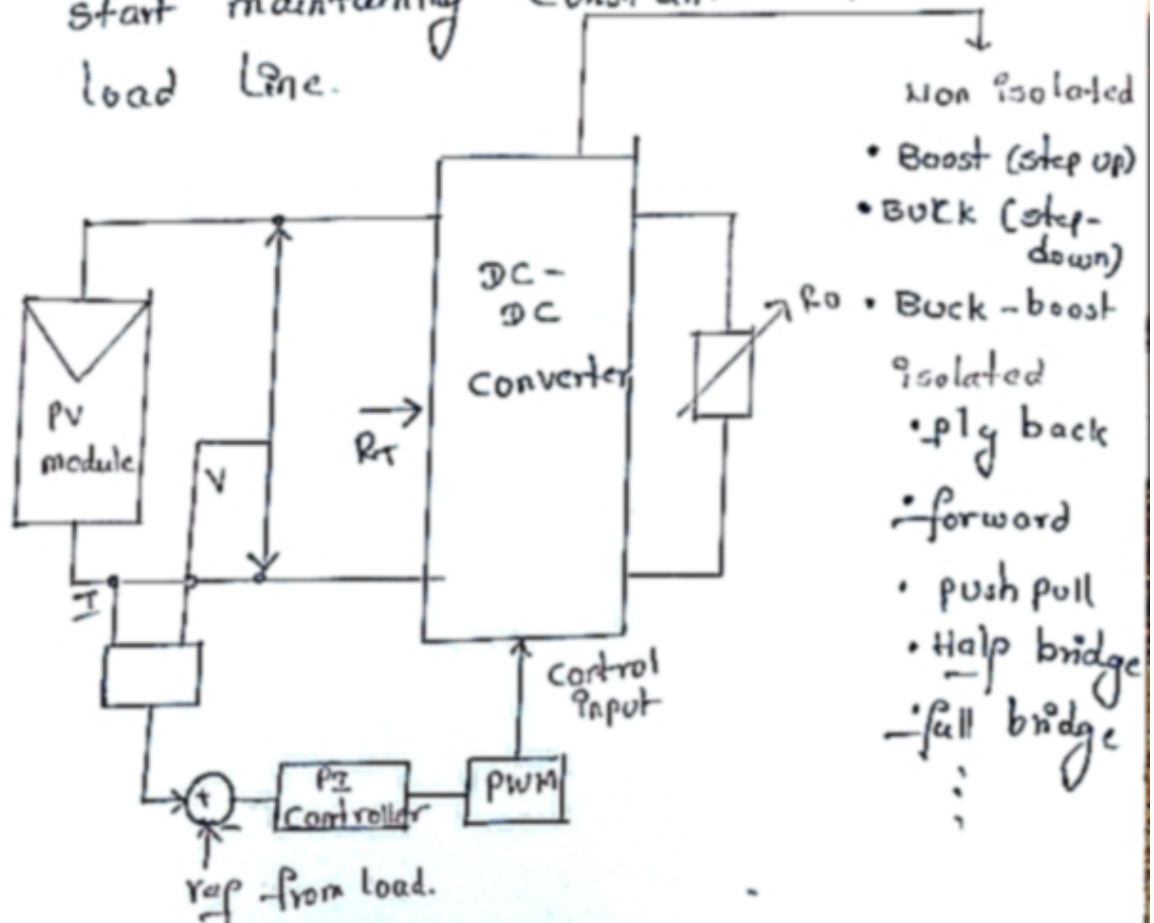 start maintaining
load Line.
Non isolated
• Boost (step up)
• Buck (step-
down)
• Buck-boost
isolated
• fly back
• forward
• push pull
• Half bridge
• full bridge
DC-
DC
Converter
Ro
PV
module
V
I
Control
input
PI
Controller
PWM
+
-
ref from load.